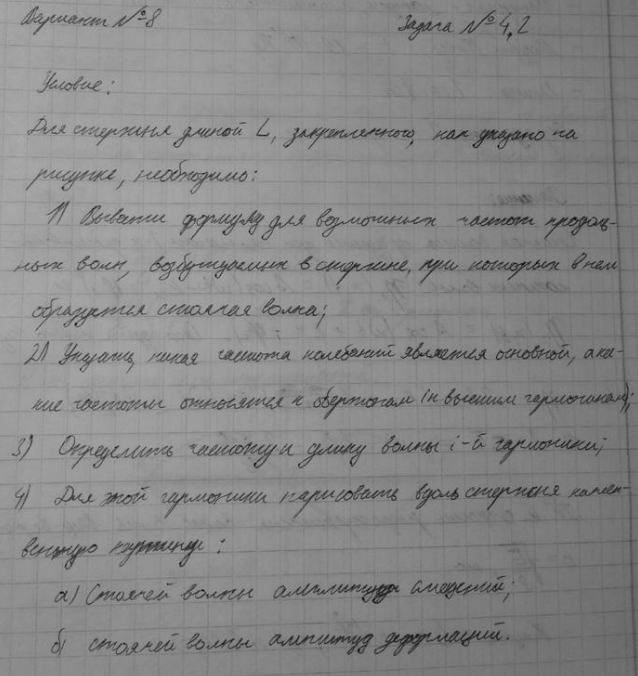 Вариант №8 Задача №4.2
Условие:
Для стержня длиной L, закрепленного, как указано на
рисунке, необходимо:
1) Вывести формулу для возможных частот продоль-
ных волн, возбуждаемых в стержне, при которых в нем
образуется стоячая волна;
2) Указать, какая частота колебаний является основной, а ка-
кие частоты относятся к обертонам (к высшим гармоникам);
3) Определить частоту и длину волны i-й гармоники;
4) Для этой гармоники нарисовать вдоль стержня качест-
венную картину:
а) Стоячей волны амплитуд смещений;
б) стоячей волны амплитуд деформаций.